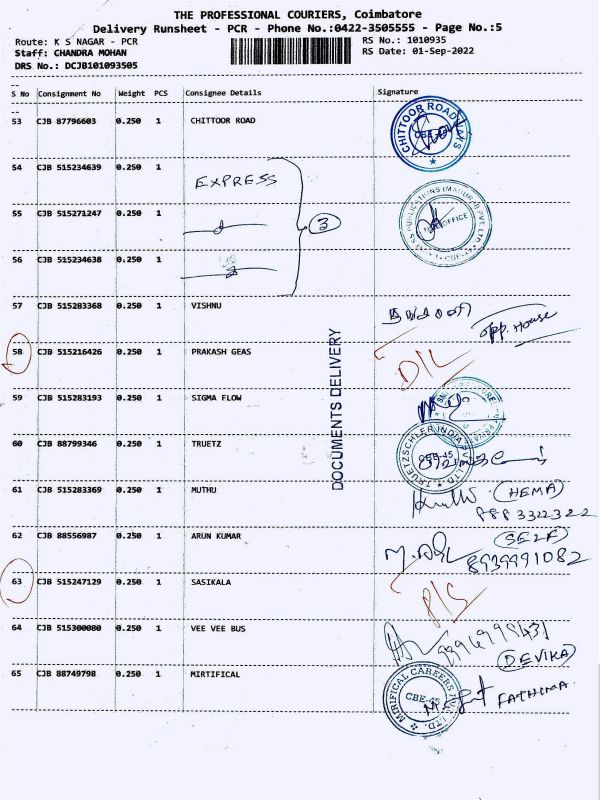 THE PROFESSIONAL COURIERS, Coimbatore
Delivery Runsheet - PCR - Phone No.:0422-3505555 - Page No.:5
Route: K S NAGAR - PCR
RS No.: 1010935
Staff: CHANDRA MOHAN
RS Date: 01-Sep-2022
DRS No.: DCJB101093505
S No Consignment No Weight PCS Consignee Details Signature
53 CJB 87796603 0.250 1 CHITTOOR ROAD
CHITTOOR ROADWAYS
54 CJB 515234639 0.250 1
EXPRESS
55 CJB 515271247 0.250 1
3
PUBLICATIONS (MADURAI) PVT. LTD
OFFICE
56 CJB 515234638 0.250 1
57 CJB 515283368 0.250 1 VISHNU
opp. House
58 CJB 515216426 0.250 1 PRAKASH GEAS
D/L
DOCUMENTS DELIVERY
59 CJB 515283193 0.250 1 SIGMA FLOW
60 CJB 88799346 0.250 1 TRUETZ
TRUETZSCHLER INDIA
CBE-45
61 CJB 515283369 0.250 1 MUTHU
(HEMA)
62 CJB 88556987 0.250 1 ARUN KUMAR
(SELF)
8939991082
63 CJB 515247129 0.250 1 SASIKALA
64 CJB 515300080 0.250 1 VEE VEE BUS
(DEVIKA)
65 CJB 88749798 0.250 1 MIRTIFICAL
MIRIFICAL CAREERS PVT. LTD.
CBE-45
FATHIMA